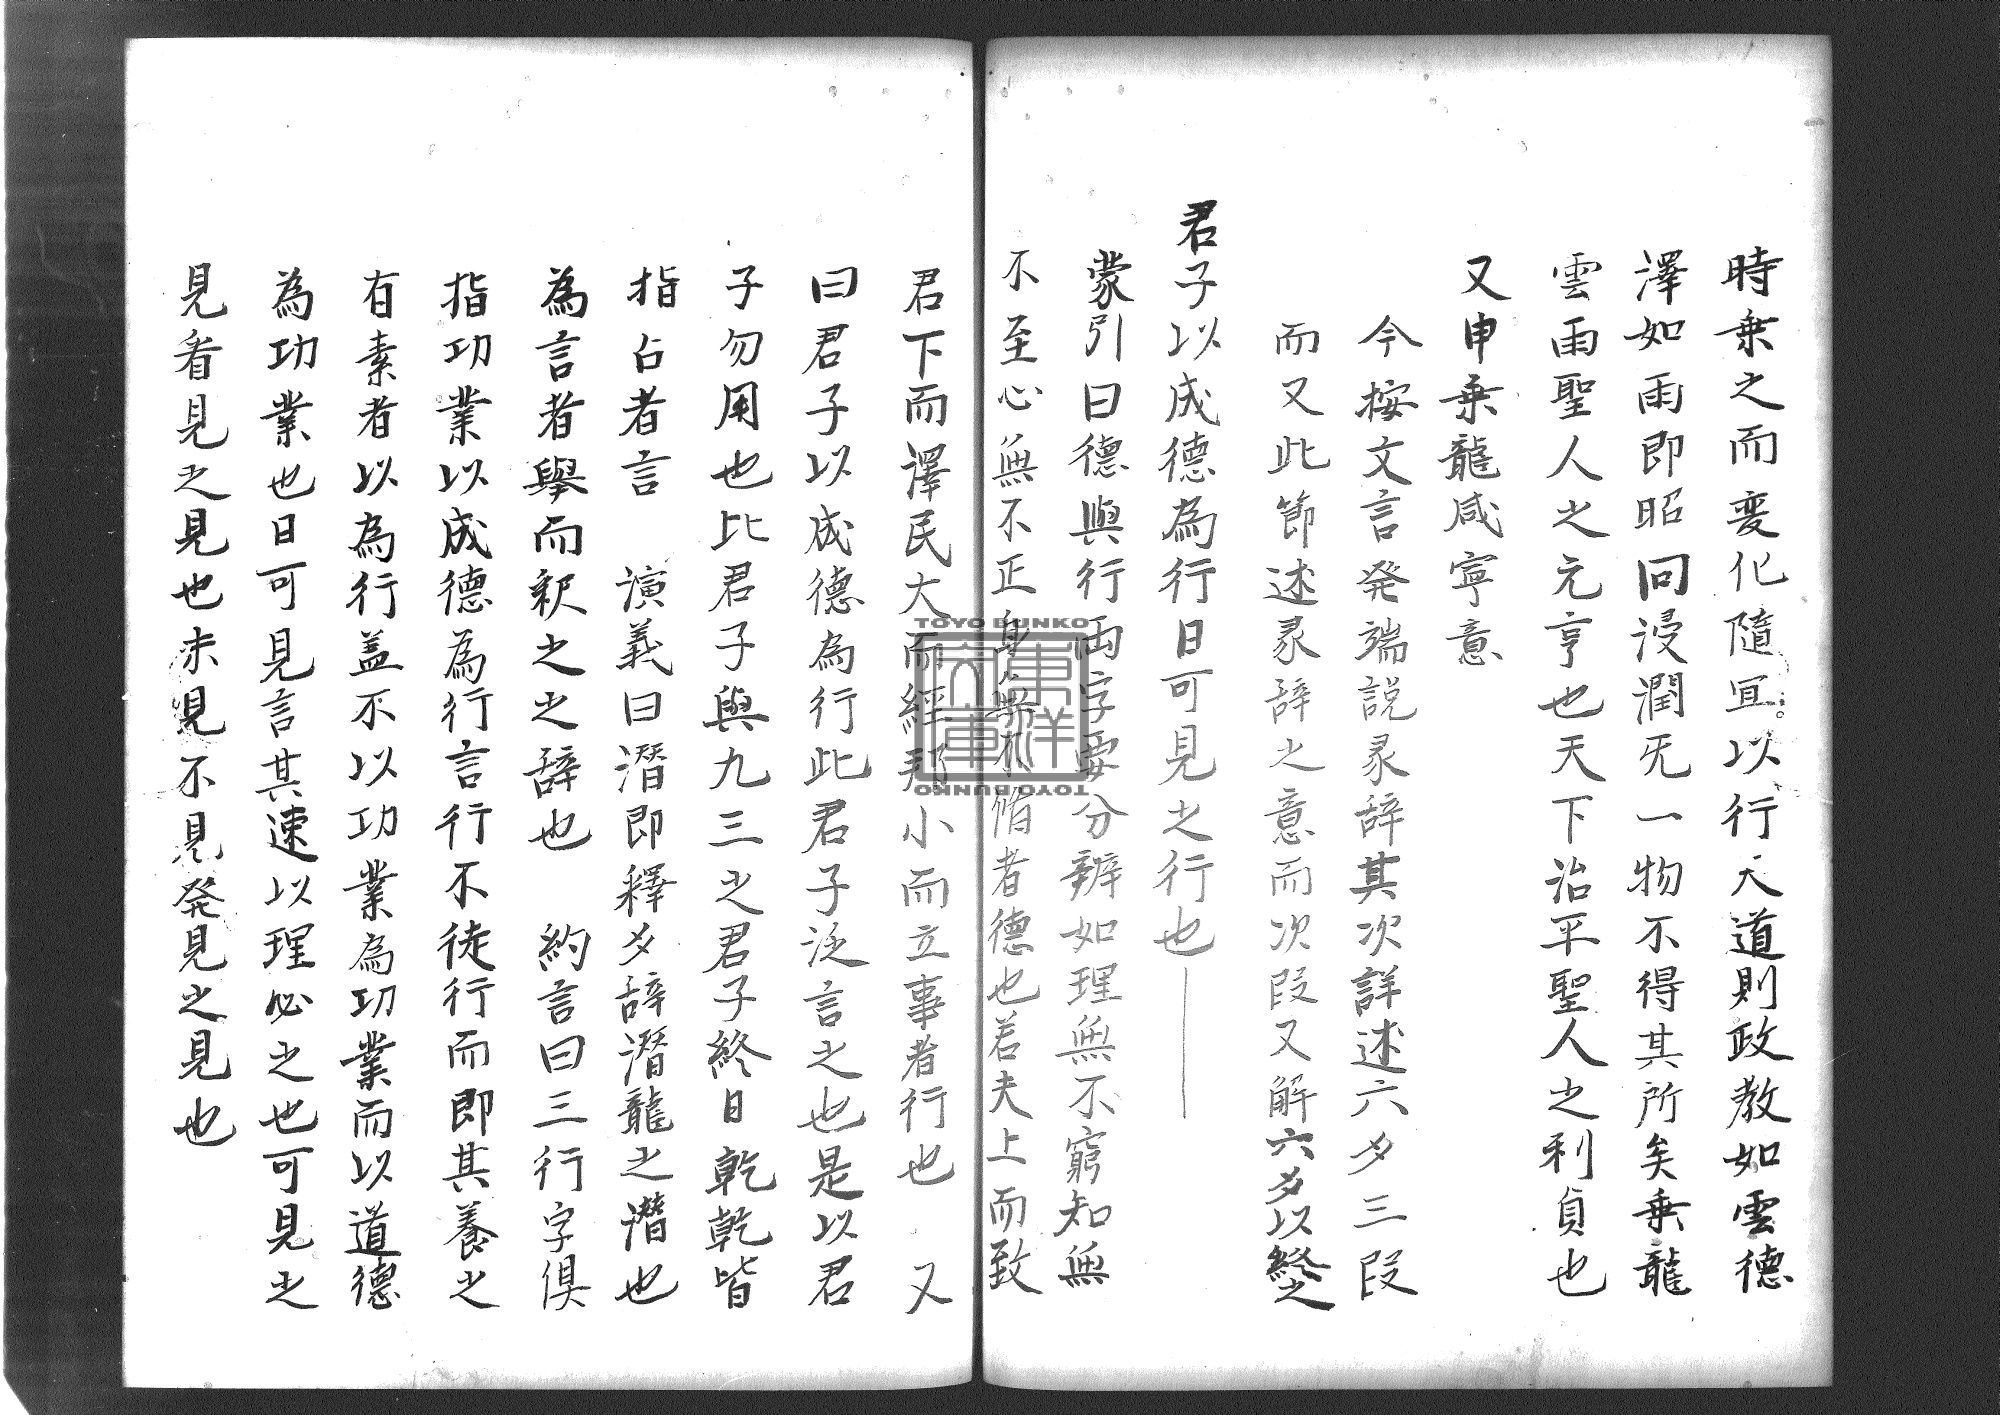 時乗之而変化隨宜以行天道則政教如雲德
澤如雨即昭回浸潤旡一物不得其所矣乗龍
雲雨聖人之元亨也天下治平聖人之利貞也
又申乗龍咸寧意
今按文言発端説彖辞其次詳述六爻三段
而又此節述彖辞之意而次段又解六爻以終之
君子以成德為行日可見之行也
蒙引曰德與行両字要分辨如理無不窮知無
不至心無不正身無不脩者德也若夫上而致
君下而澤民大而經邦小而立事者行也 又
曰君子以成德為行此君子泛言之也是以君
子勿用也比君子與九三之君子終日乾乾皆
指占者言 演義曰潛即釋爻辞潛龍之潛也
為言者舉而釈之之辞也 約言曰三行字俱
指功業以成德為行言行不徒行而即其養之
有素者以為行盖不以功業為功業而以道德
為功業也日可見言其速以理必之也可見之
見看見之見也未見不見発見之見也
TOYO BUNKO
東洋文庫
TOYO BUNKO